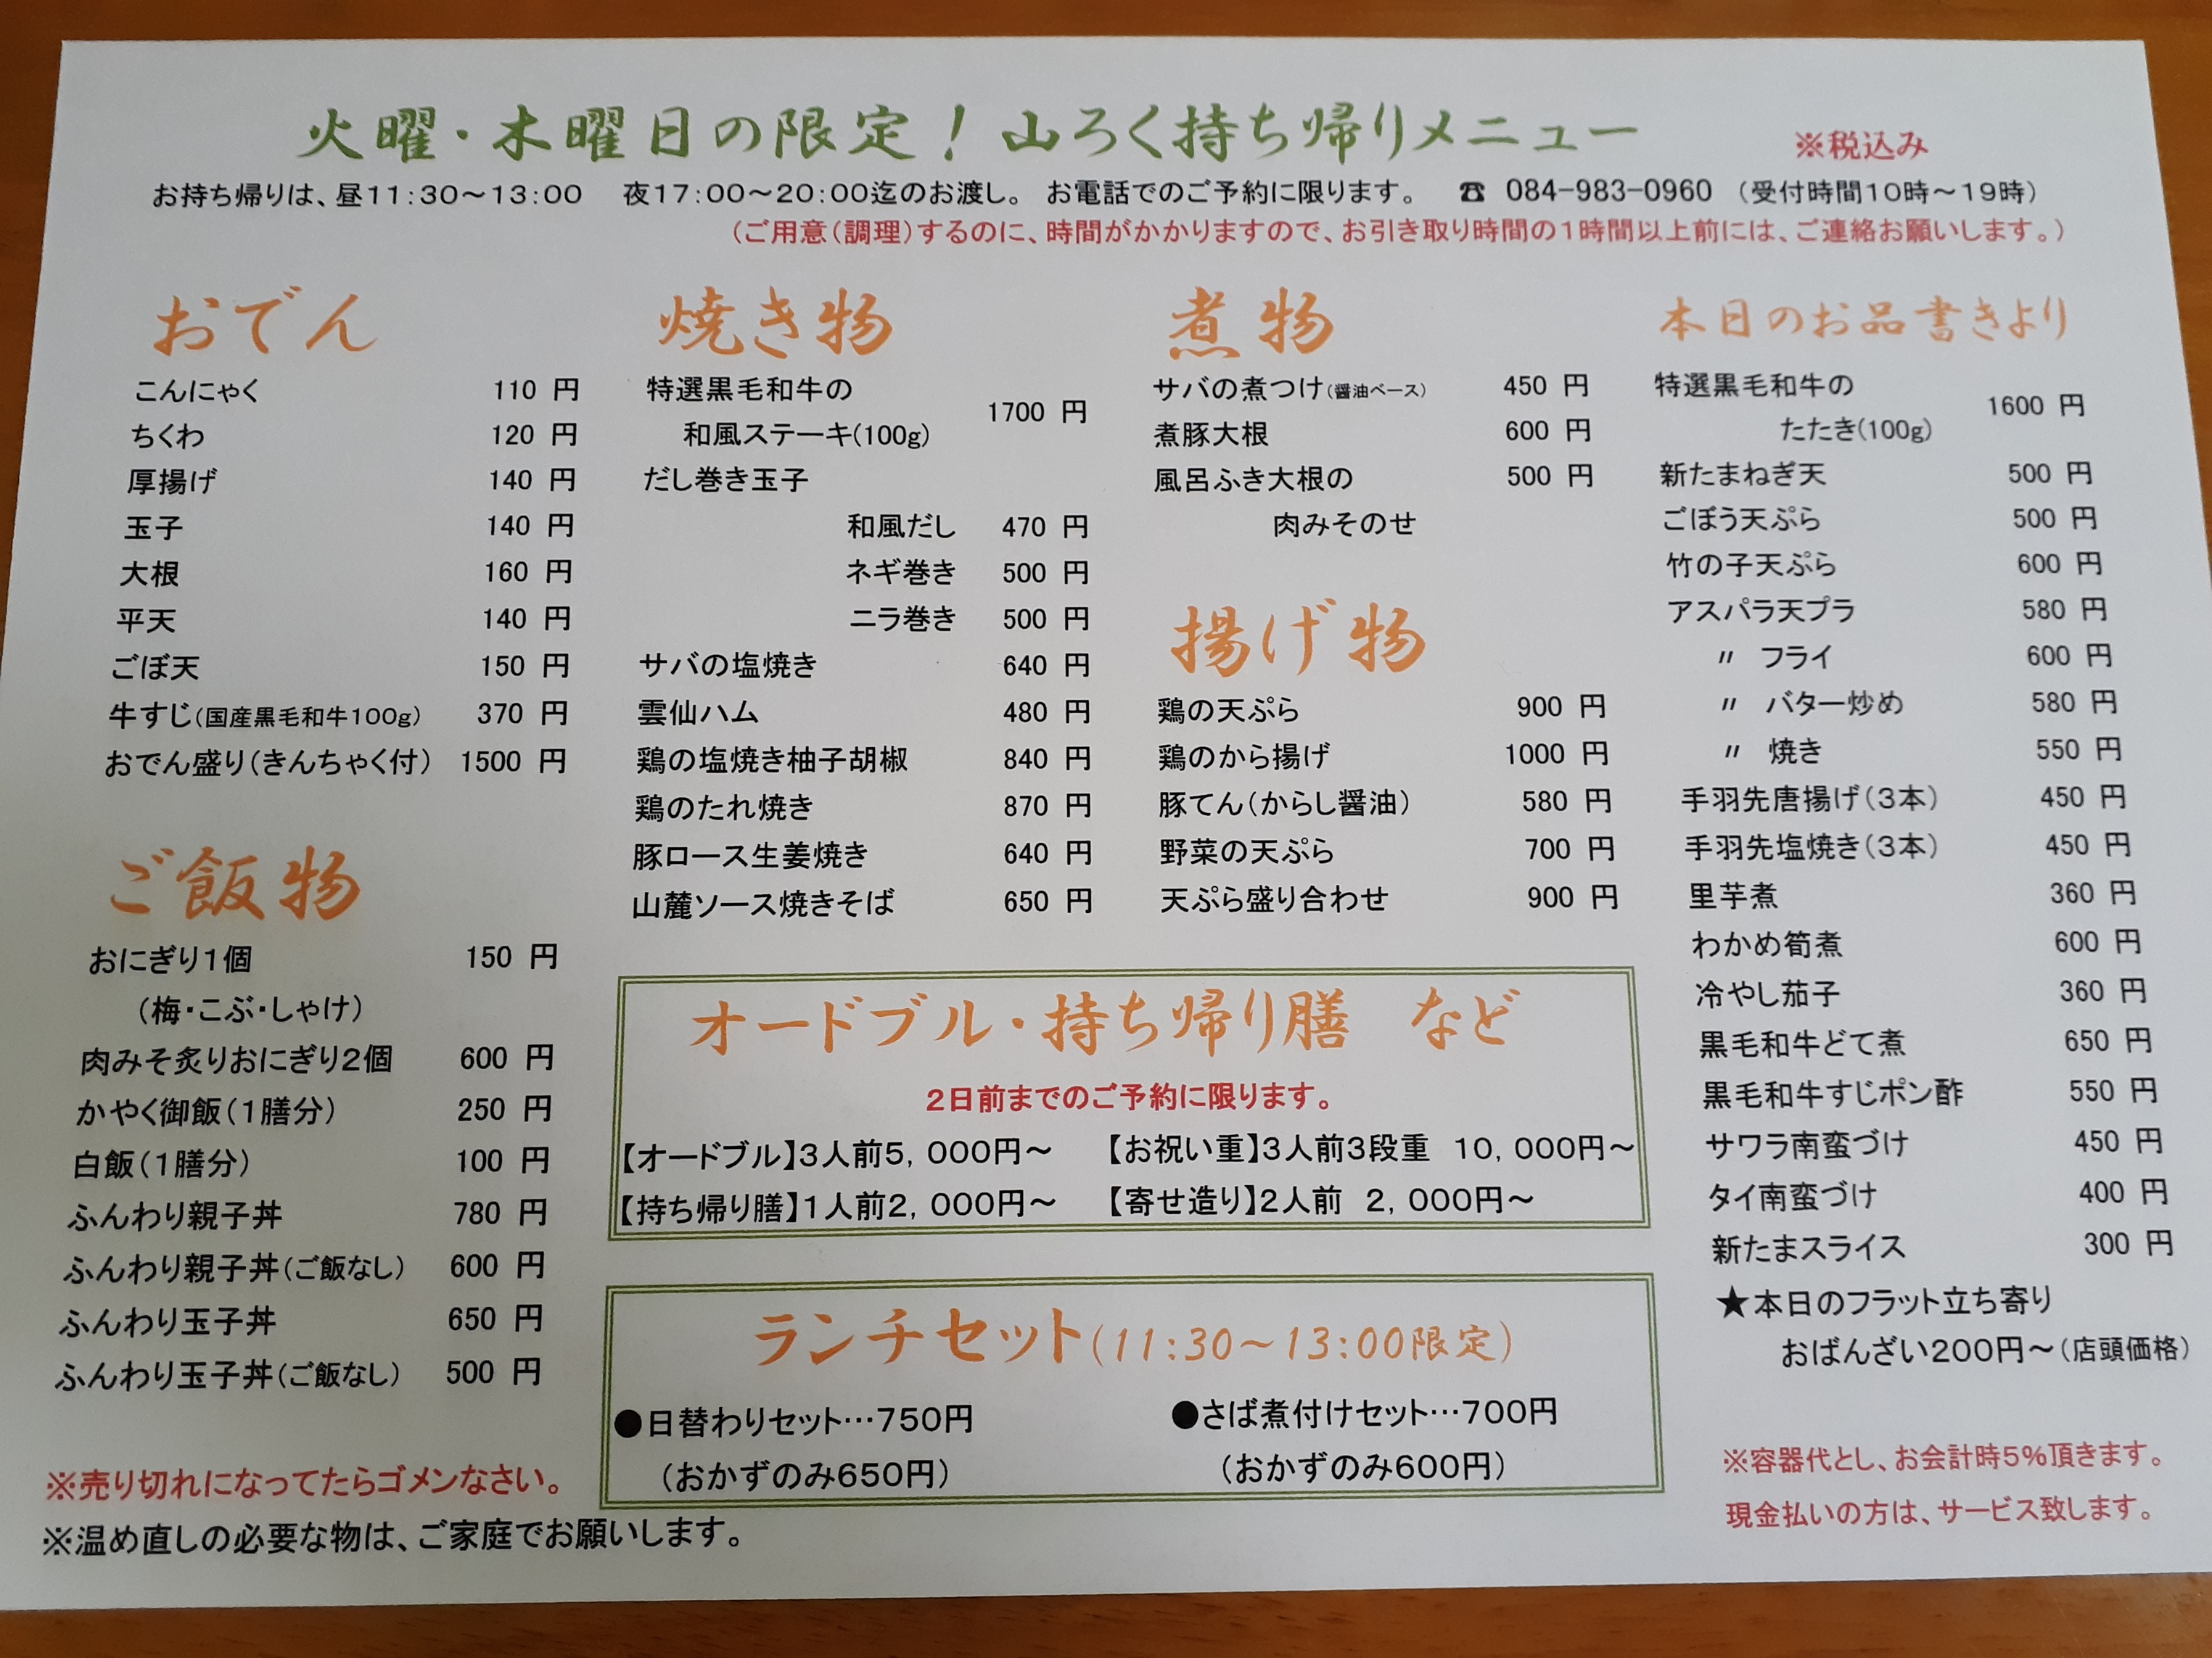 火曜・木曜日の限定！山ろく持ち帰りメニュー ※税込み
お持ち帰りは、昼11:30～13:00 夜17:00～20:00迄のお渡し。 お電話でのご予約に限ります。 ☎ 084-983-0960 （受付時間10時～19時）
（ご用意（調理）するのに、時間がかかりますので、お引き取り時間の1時間以上前には、ご連絡お願いします。）
おでん
こんにゃく 110 円
ちくわ 120 円
厚揚げ 140 円
玉子 140 円
大根 160 円
平天 140 円
ごぼ天 150 円
牛すじ（国産黒毛和牛100g） 370 円
おでん盛り（きんちゃく付） 1500 円
ご飯物
おにぎり1個 150 円
（梅・こぶ・しゃけ）
肉みそ炙りおにぎり2個 600 円
かやく御飯（1膳分） 250 円
白飯（1膳分） 100 円
ふんわり親子丼 780 円
ふんわり親子丼（ご飯なし） 600 円
ふんわり玉子丼 650 円
ふんわり玉子丼（ご飯なし） 500 円
※売り切れになってたらゴメンなさい。
※温め直しの必要な物は、ご家庭でお願いします。
焼き物
特選黒毛和牛の
和風ステーキ(100g) 1700 円
だし巻き玉子
和風だし 470 円
ネギ巻き 500 円
ニラ巻き 500 円
サバの塩焼き 640 円
雲仙ハム 480 円
鶏の塩焼き柚子胡椒 840 円
鶏のたれ焼き 870 円
豚ロース生姜焼き 640 円
山麓ソース焼きそば 650 円
煮物
サバの煮つけ（醤油ベース） 450 円
煮豚大根 600 円
風呂ふき大根の 500 円
肉みそのせ
揚げ物
鶏の天ぷら 900 円
鶏のから揚げ 1000 円
豚てん（からし醤油） 580 円
野菜の天ぷら 700 円
天ぷら盛り合わせ 900 円
オードブル・持ち帰り膳 など
2日前までのご予約に限ります。
【オードブル】3人前5，000円～ 【お祝い重】3人前3段重 10，000円～
【持ち帰り膳】1人前2，000円～ 【寄せ造り】2人前 2，000円～
ランチセット（11:30～13:00限定）
●日替わりセット…750円 ●さば煮付けセット…700円
（おかずのみ650円） （おかずのみ600円）
本日のお品書きより
特選黒毛和牛の
たたき(100g) 1600 円
新たまねぎ天 500 円
ごぼう天ぷら 500 円
竹の子天ぷら 600 円
アスパラ天プラ 580 円
〃 フライ 600 円
〃 バター炒め 580 円
〃 焼き 550 円
手羽先唐揚げ（3本） 450 円
手羽先塩焼き（3本） 450 円
里芋煮 360 円
わかめ筍煮 600 円
冷やし茄子 360 円
黒毛和牛どて煮 650 円
黒毛和牛すじポン酢 550 円
サワラ南蛮づけ 450 円
タイ南蛮づけ 400 円
新たまスライス 300 円
★本日のフラット立ち寄り
おばんざい200円～（店頭価格）
※容器代とし、お会計時5％頂きます。
現金払いの方は、サービス致します。